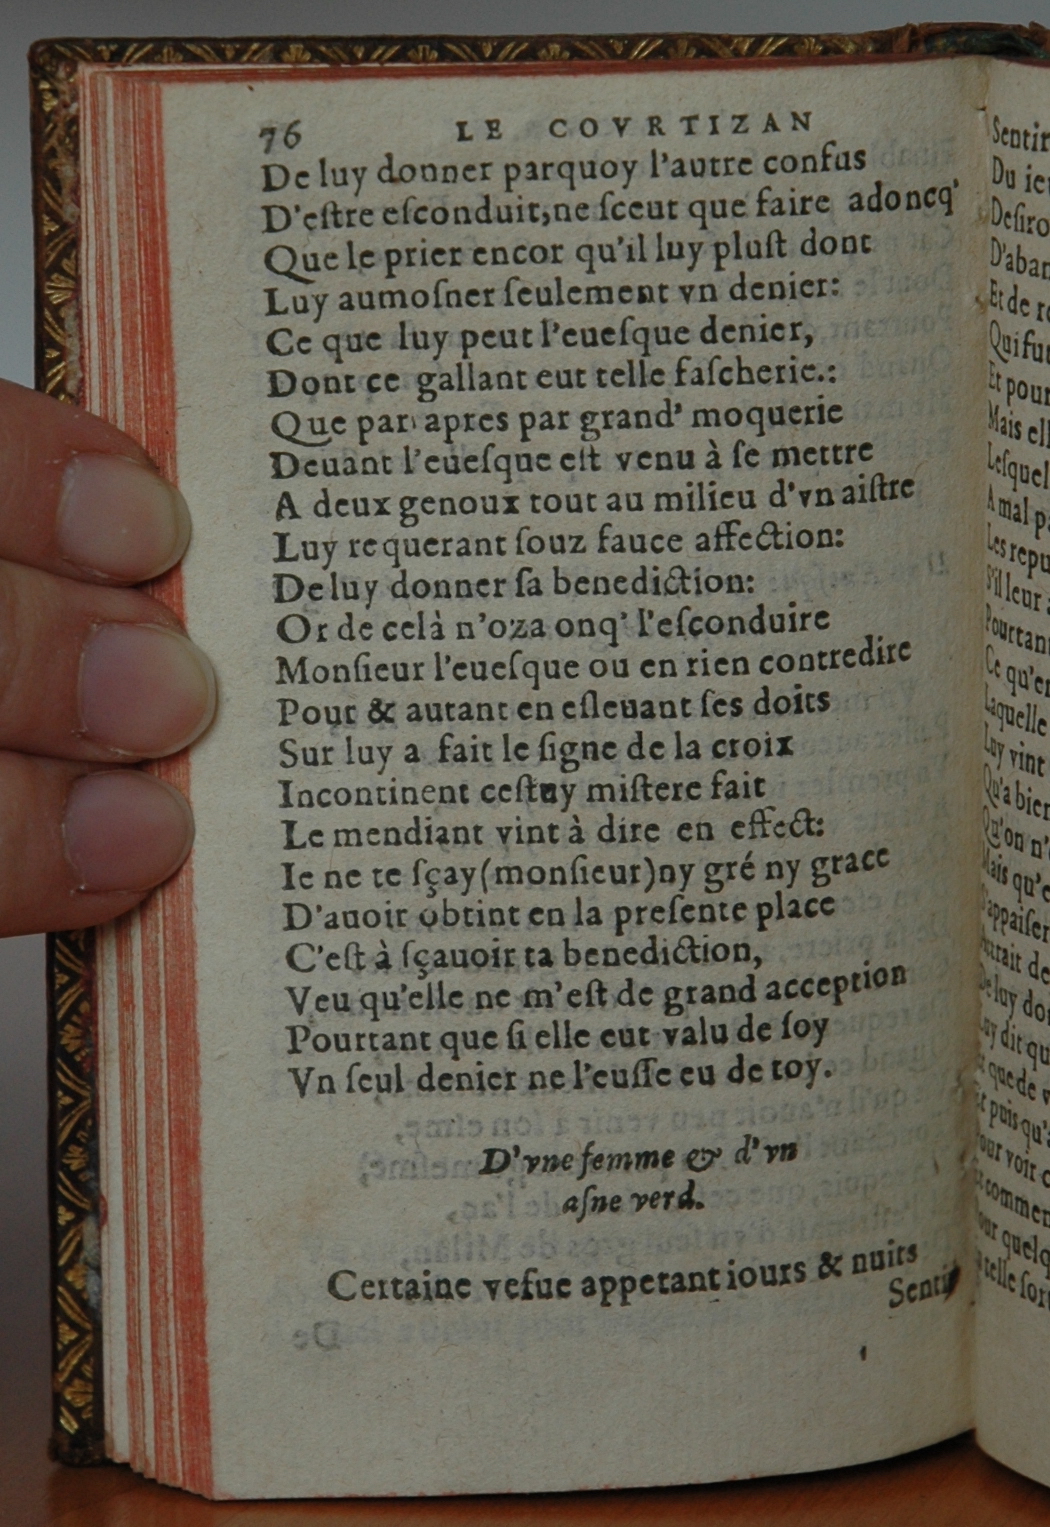 76 LE COVRTIZAN
De luy donner parquoy l'autre confus
D'eſtre eſconduit,ne ſceut que faire adoncq'
Que le prier encor qu'il luy pluſt dont
Luy aumoſner ſeulement vn denier:
Ce que luy peut l'eueſque denier,
Dont ce gallant eut telle faſcherie.:
Que par apres par grand' moquerie
Deuant l'eueſque eſt venu à ſe mettre
A deux genoux tout au milieu d'vn aiſtre
Luy requerant ſouz fauce affection:
De luy donner ſa benediction:
Or de celà n'oza onq' l'eſconduire
Monſieur l'eueſque ou en rien contredire
Pour & autant en eſleuant ſes doits
Sur luy a fait le ſigne de la croix
Incontinent ceſtuy miſtere fait
Le mendiant vint à dire en effect:
Ie ne te ſçay(monſieur)ny gré ny grace
D'auoir obtint en la preſente place
C'eſt à ſçauoir ta benediction,
Veu qu'elle ne m'eſt de grand acception
Pourtant que ſi elle eut valu de ſoy
Vn ſeul denier ne l'euſſe eu de toy.
D'vne femme & d'vn
aſne verd.
Certaine vefue appetant iours & nuits
Sentir
Sentir
Du ieu
Deſiro
D'aban
Et de re
Qui fut
Et pour
Mais ell
Leſquel
A mal p
Les repu
S'il leur
Pourtant
Ce qu'en
Laquelle
Luy vint
Qu'a bien
Qu'on n'
Mais qu'e
S'appaiſer
De luy don
Luy dit qu
que de v
Et puis qu'
Pour voir c
commen
Pour quelq
telle ſort